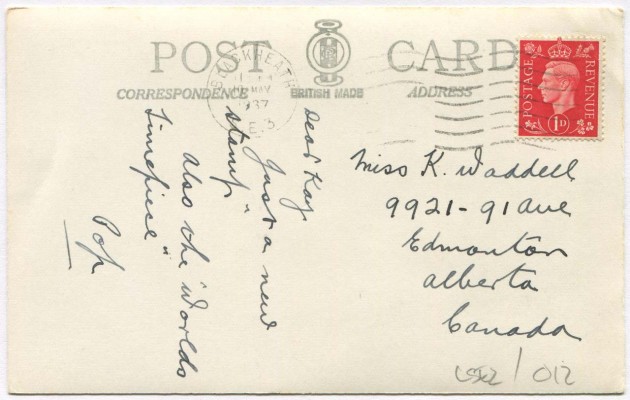 POST CARD
CORRESPONDENCE BRITISH MADE ADDRESS
BLACKHEATH
MAY
1937
S.E.3
POSTAGE REVENUE
1D
Dear Kay
Just a new
stamp "
also the "worlds
timepiece "
Pop
Miss K. Waddell
9921-91 ave
Edmonton
alberta
Canada
/ 012